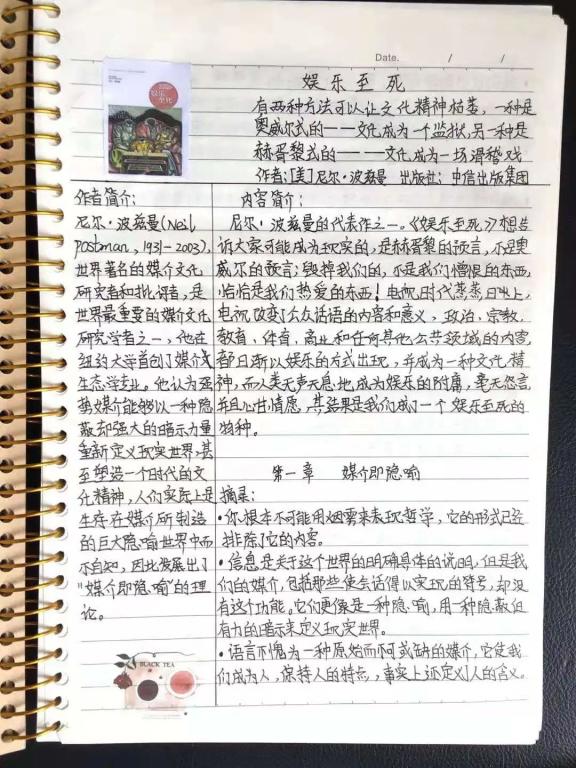 Date. / /
娱乐至死
娱乐
至死
有两种方法可以让文化精神枯萎，一种是
奥威尔式的——文化成为一个监狱，另一种是
赫胥黎式的——文化成为一场滑稽戏
作者：[美]尼尔·波兹曼 出版社：中信出版集团
作者简介：
尼尔·波兹曼(Neil
Postman, 1931-2003),
世界著名的媒介文化
研究者和批评者，是
世界最重要的媒介文化
研究学者之一，他在
纽约大学首创了媒介
生态学专业。他认为强
势媒介能够以一种隐
蔽却强大的暗示力量
重新定义现实世界，甚
至塑造一个时代的文
化精神，人们实际上是
生存在媒介所制造
的巨大隐喻世界中而
不自知，因此发展出了
"媒介即隐喻"的理
论。
BLACK TEA
内容简介：
尼尔·波兹曼的代表作之一。《娱乐至死》想告
诉大家可能成为现实的，是赫胥黎的预言，不是奥
威尔的预言；毁掉我们的，不是我们憎恨的东西，
恰恰是我们热爱的东西！电视时代蒸蒸日上，
电视改变了公众话语的内容和意义，政治、宗教、
教育、体育、商业和任何其他公共领域的内容，
都日渐以娱乐的方式出现，并成为一种文化精
神，而人类无声无息地成为娱乐的附庸，毫无怨言，
并且心甘情愿，其结果是我们成了一个娱乐至死的
物种。
第一章 媒介即隐喻
摘录：
·你根本不可能用烟雾来表现哲学，它的形式已经
排除了它的内容。
·信息是关于这个世界的明确具体的说明，但是我
们的媒介，包括那些使会话得以实现的符号，却没
有这个功能。它们更像是一种隐喻，用一种隐蔽但
有力的暗示来定义现实世界。
·语言不愧为一种原始而不可或缺的媒介，它使我
们成为人，保持人的特点，事实上还定义了人的含义。